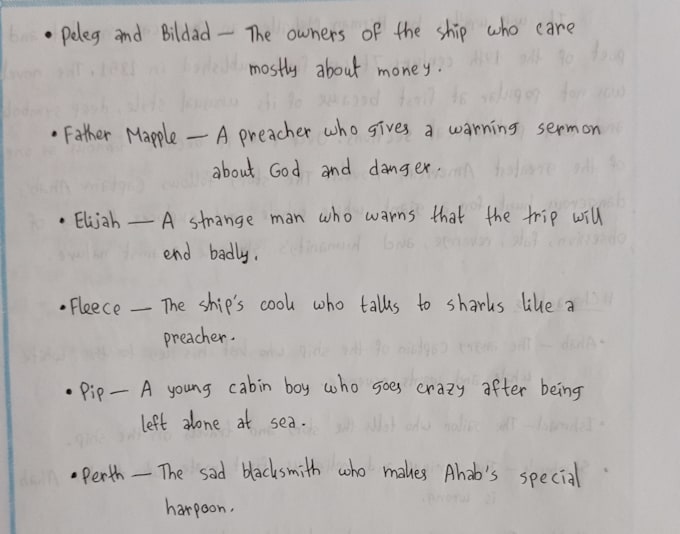 • Peleg and Bildad — The owners of the ship who care
mostly about money.
• Father Mapple — A preacher who gives a warning sermon
about God and danger.
• Elijah — A strange man who warns that the trip will
end badly.
• Fleece — The ship's cook who talks to sharks like a
preacher.
• Pip — A young cabin boy who goes crazy after being
left alone at sea.
• Perth — The sad blacksmith who makes Ahab's special
harpoon.